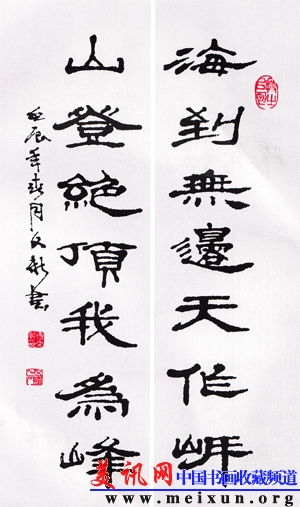 海到無邊天作岸
山登絶頂我為峰
壬辰年春月文書
美讯网
中国书画收藏频道
www.meixun.org